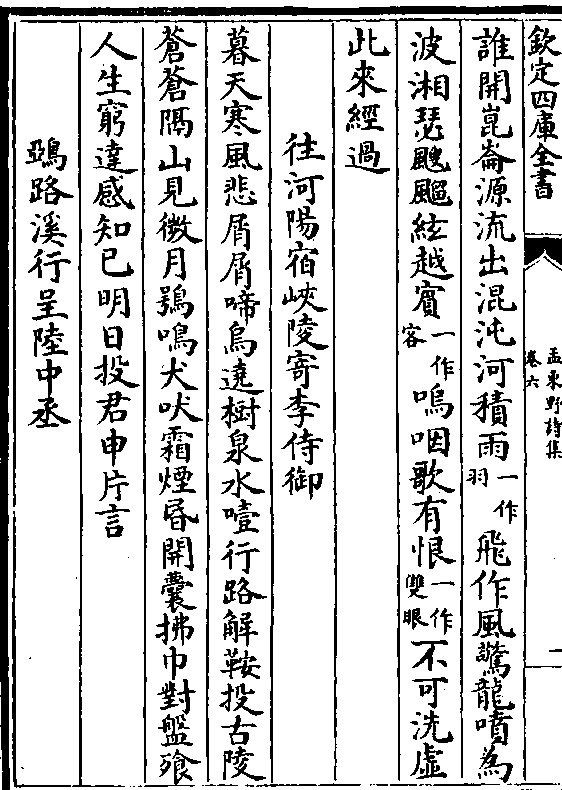 欽定四庫全書
孟東野詩集
卷六
誰開崑崙源流出混沌河積雨一作羽飛作風驚龍噴為
波湘瑟颼飀絃越賓一作客嗚咽歌有恨一作雙眼不可洗虛
此來經過
往河陽宿峽陵寄李侍御
暮天寒風悲屑屑啼烏遶樹泉水噎行路解鞍投古陵
蒼蒼隔山見微月鴞鳴犬吠霜煙昏開囊拂巾對盤飱
人生窮達感知已明日投君申片言
鵶路溪行呈陸中丞